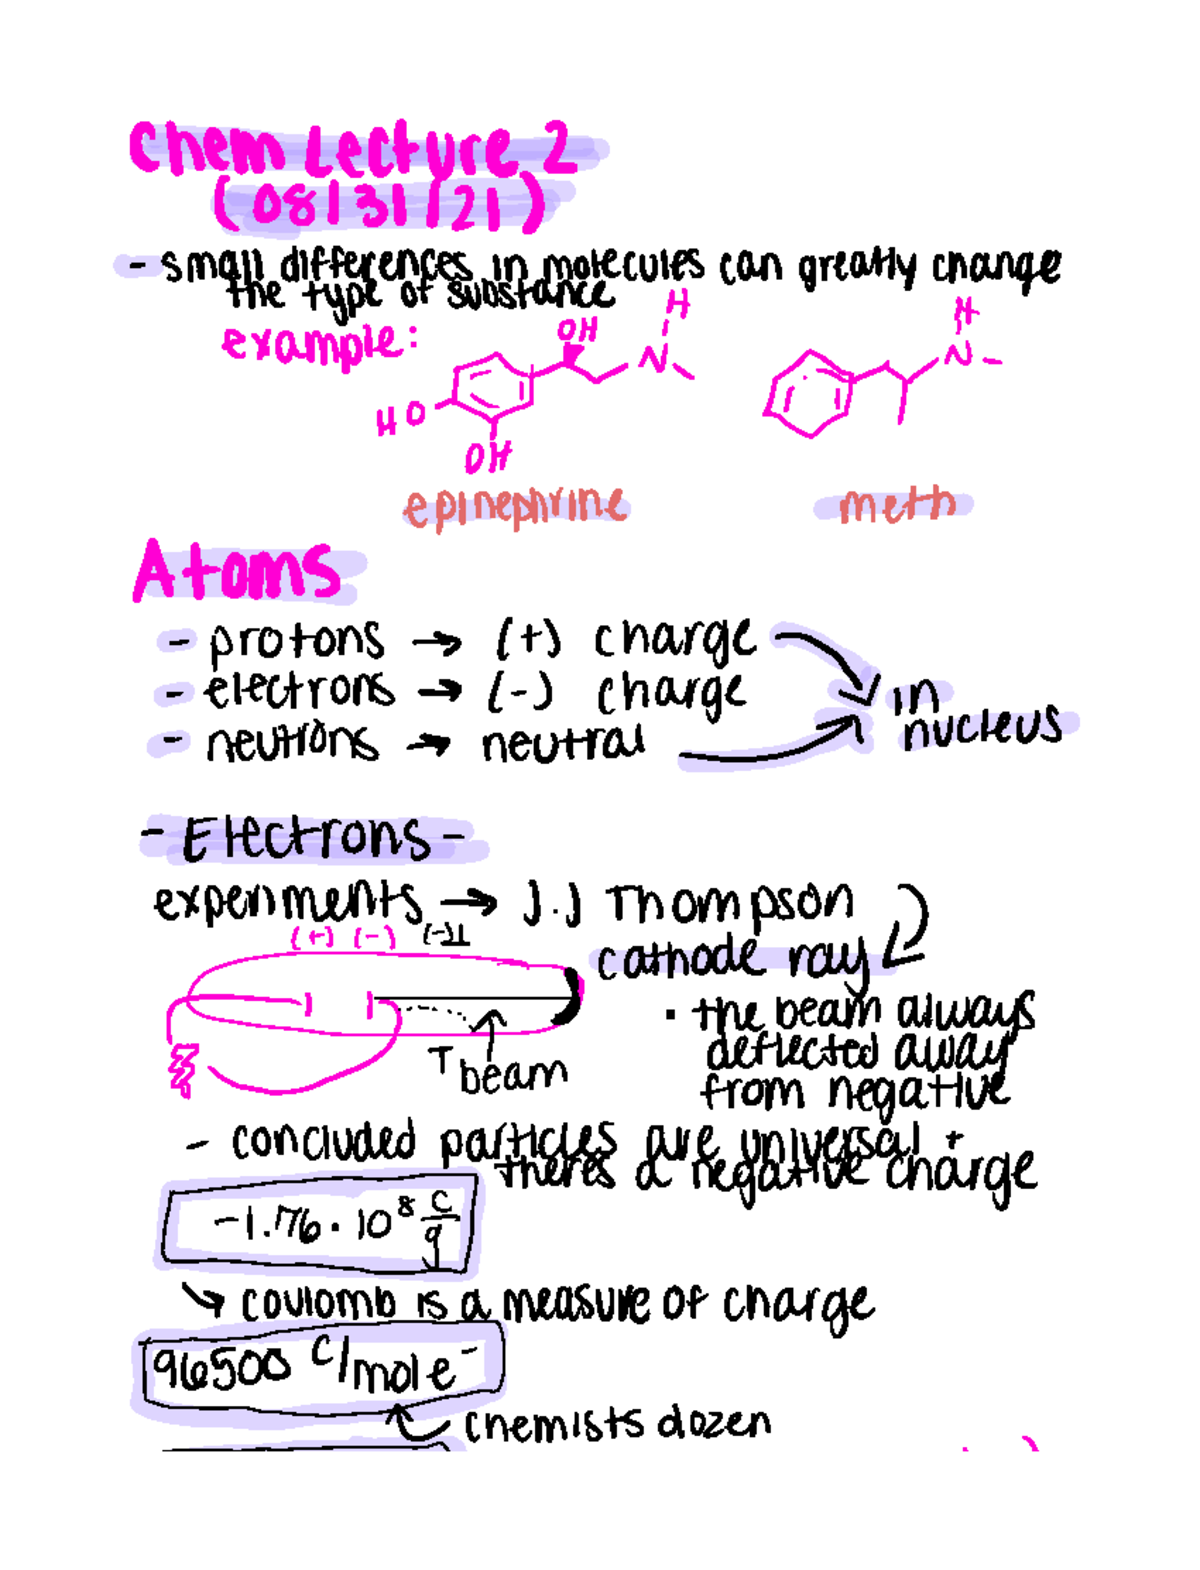 Chem Lecture 2
(08/31/21)
- small differences in molecules can greatly change
the type of substance
example:
OH
H
N
HO
OH
H
N
epinephrine
meth
Atoms
- protons → (+) charge
- electrons → (-) charge
- neutrons → neutral
in
nucleus
- Electrons -
experiments → J.J Thompson
cathode ray
(+) (-)
• the beam always
deflected away
from negative
beam
- concluded particles are universal +
theres a negative charge
-1.76 · 10⁸ C/g
↳ coulomb is a measure of charge
96500 C/mol e⁻
chemists dozen